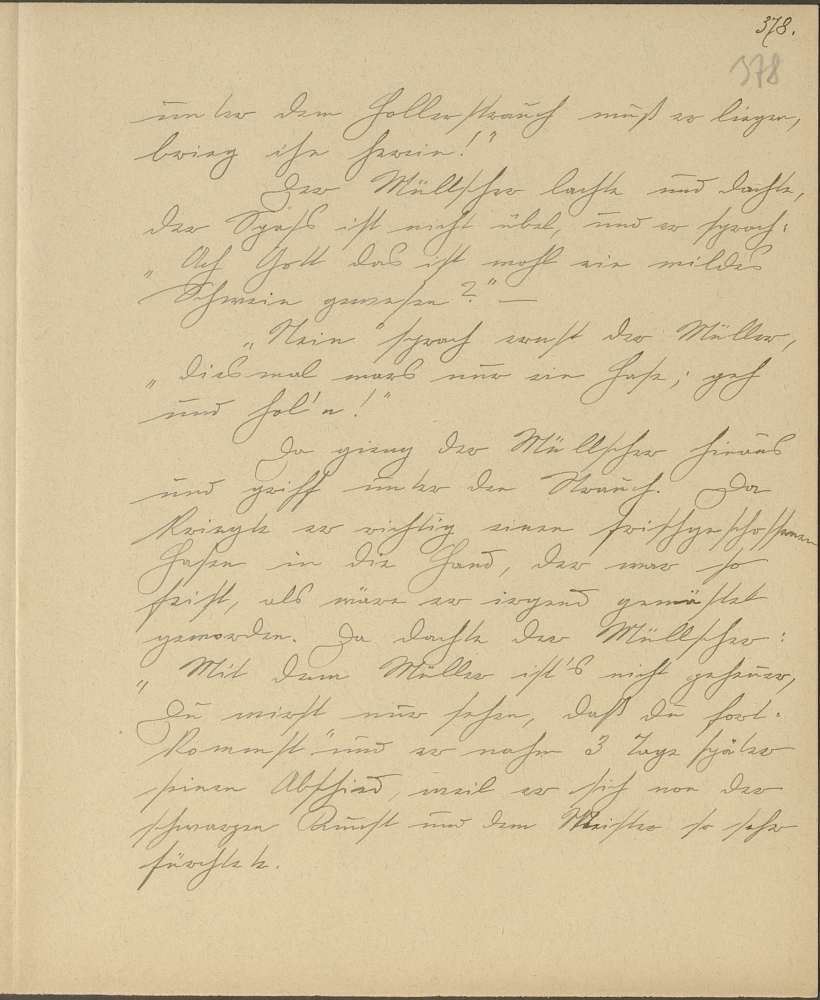 378.
378
unter dem Hollerstrauch muß er liegen,
bring ihn herein!"
Der Müllscher lachte und dachte,
der Spaß ist nicht übel, und er sprach:
„Ach Gott das ist wohl ein wildes
Schwein gewesen?" —
„Nein" sprach ernst der Müller,
„diesmal wars nur ein Hase; geh
und hol'n!"
Da gieng der Müllscher hinaus
und griff unter den Strauch. Da
kriegte er richtig einen frischgeschossenen
Hasen in die Hand, der war so
feist, als wäre er irgend gemästet
geworden. Da dachte der Müllscher:
„Mit dem Müller ist's nicht geheuer,
Du wirst nur sehen, daß du fort-
kommst" und er nahm 3 Tage später
seinen Abschied, weil er sich von der
schwarzen Kunst und dem Meister so sehr
fürchtete.